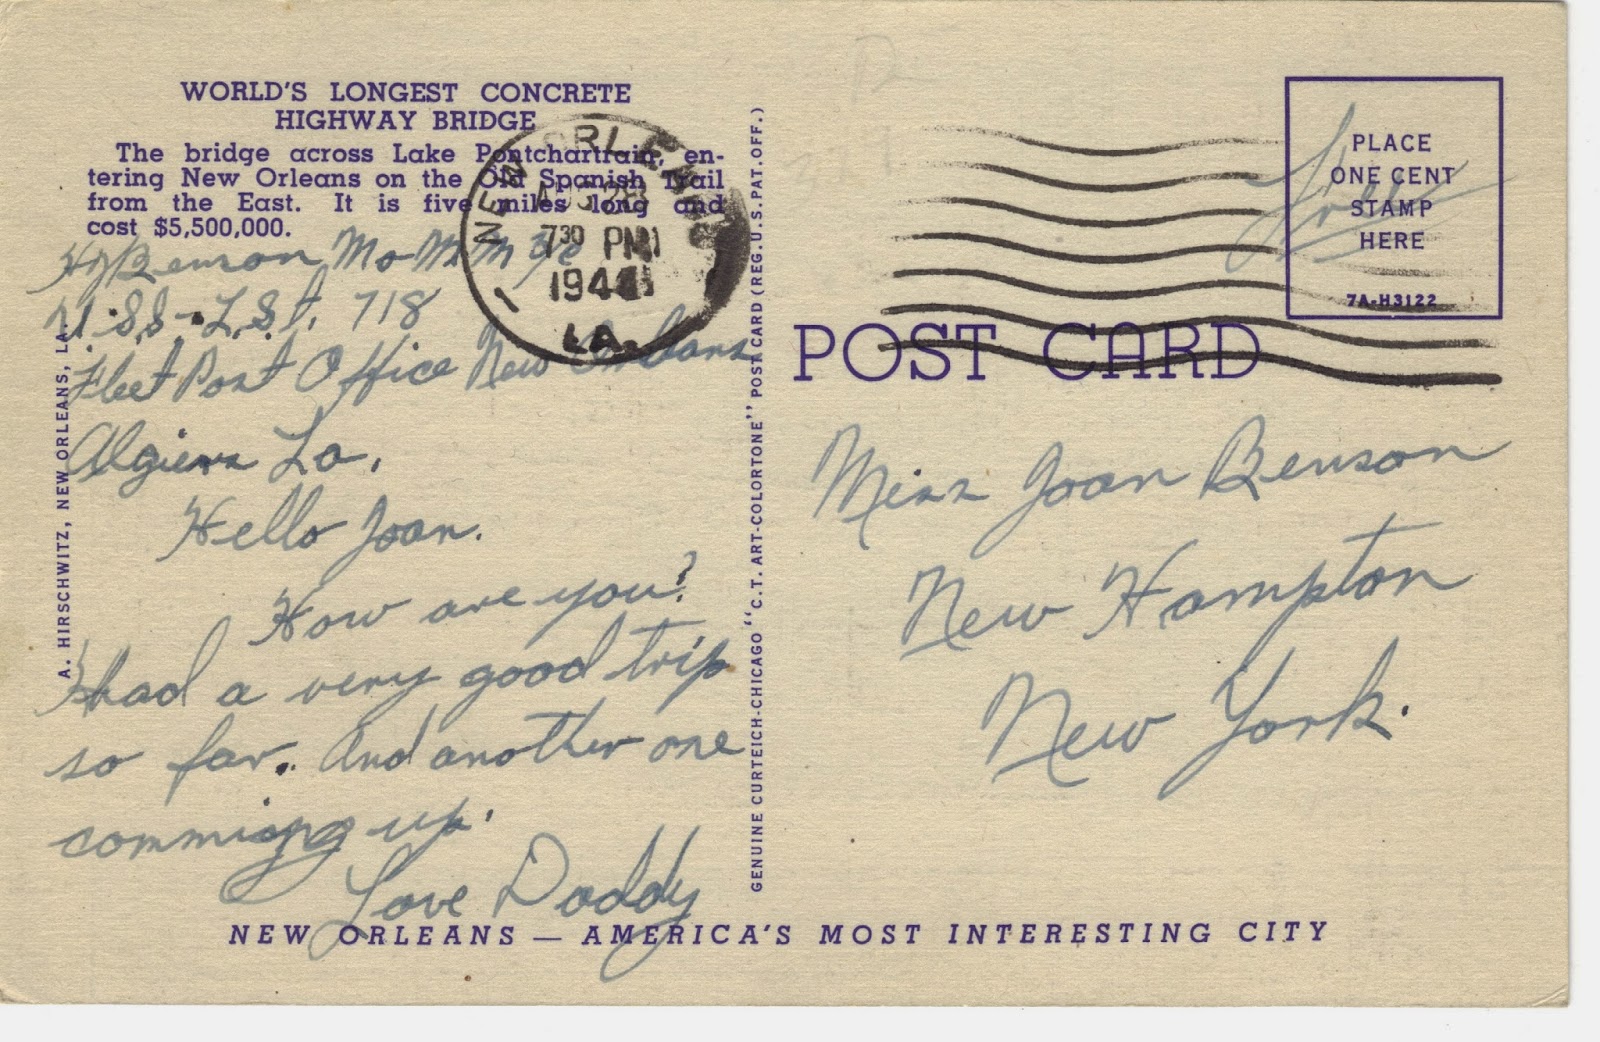 WORLD'S LONGEST CONCRETE
HIGHWAY BRIDGE
The bridge across Lake Pontchartrain, en-
tering New Orleans on the Old Spanish Trail
from the East. It is five miles long and
cost $5,500,000.
Benson Mo M M 3/c
U.S.S - L.St. 718
Fleet Post Office New Orleans
Algiers La.
Hello Joan.
How are you?
I had a very good trip
so far. And another one
comming up.
Love Daddy
A. HIRSCHWITZ, NEW ORLEANS, LA.
NEW ORLEANS
AUG 28
7 30 PM
1944
LA.
GENUINE CURTEICH-CHICAGO "C.T. ART-COLORTONE" POST CARD (REG. U.S. PAT. OFF.)
PLACE
ONE CENT
STAMP
HERE
7A-H3122
Free
POST CARD
Miss Joan Benson
New Hampton
New York.
NEW ORLEANS — AMERICA'S MOST INTERESTING CITY